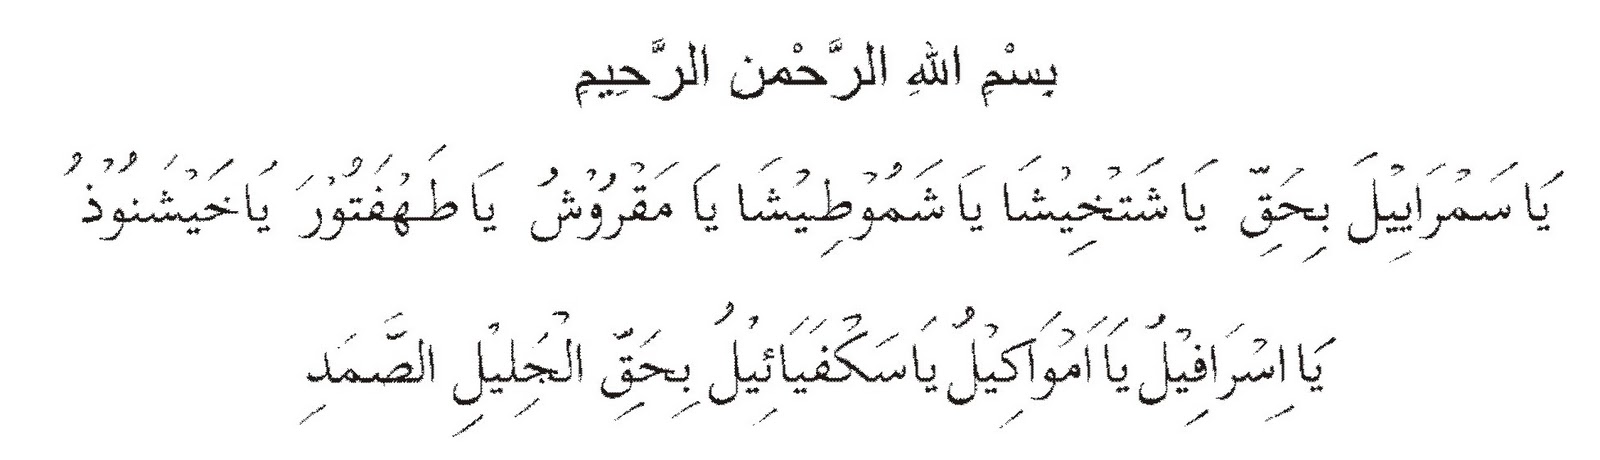 بِسْمِ اللهِ الرَّحْمن الرَّحِيمِ
يَا سَمْرَايِيْلَ بِحَقِّ يَا شَتْخِيْشَا يَا شَمُوْطِيْشَا يَا مَقْرُوْشُ يَا طَهْفَتُوْرَ يَا خَيْشَنُوْذُ
يَا اِسْرَافِيْلُ يَا اَمْوَاكِيْلُ يَا سَكْفَيَائِيْلُ بِحَقِّ الْجَلِيْلِ الصَّمَدِ